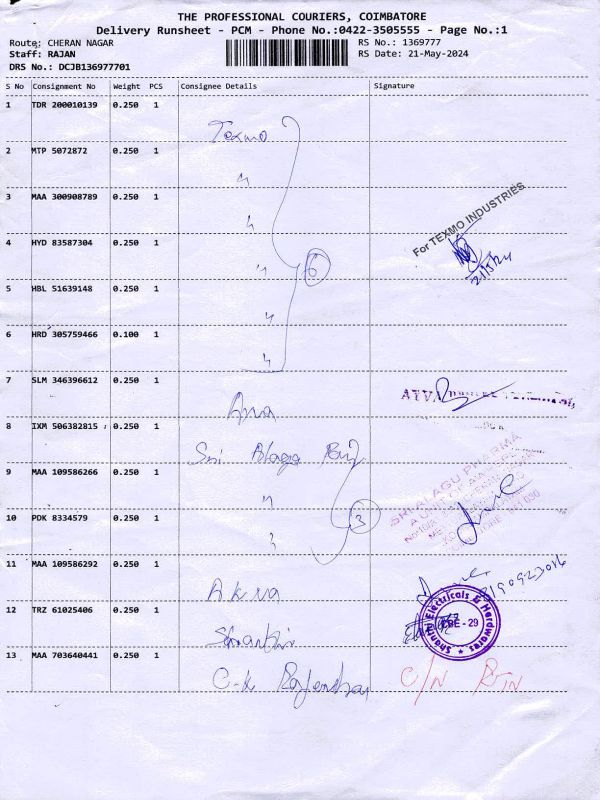 THE PROFESSIONAL COURIERS, COIMBATORE
Delivery Runsheet - PCM - Phone No.:0422-3505555 - Page No.:1
Route: CHERAN NAGAR
RS No.: 1369777
Staff: RAJAN
RS Date: 21-May-2024
DRS No.: DCJB136977701
S No Consignment No Weight PCS Consignee Details Signature
1 TDR 200010139 0.250 1 Texmo
2 MTP 5072872 0.250 1 "
3 MAA 300908789 0.250 1 "
For TEXMO INDUSTRIES
4 HYD 83587304 0.250 1 " 6
21/5/24
5 HBL 51639148 0.250 1 "
6 HRD 305759466 0.100 1 "
7 SLM 346396612 0.250 1
8 IXM 506382815 0.250 1 Sri
SRI ALAGU PHARMA
9 MAA 109586266 0.250 1 "
10 PDK 8334579 0.250 1 " 3
11 MAA 109586292 0.250 1
12 TRZ 61025406 0.250 1
Shanthi Electricals & Hardwares
CBE - 29
13 MAA 703640441 0.250 1 C.K C/N RTN